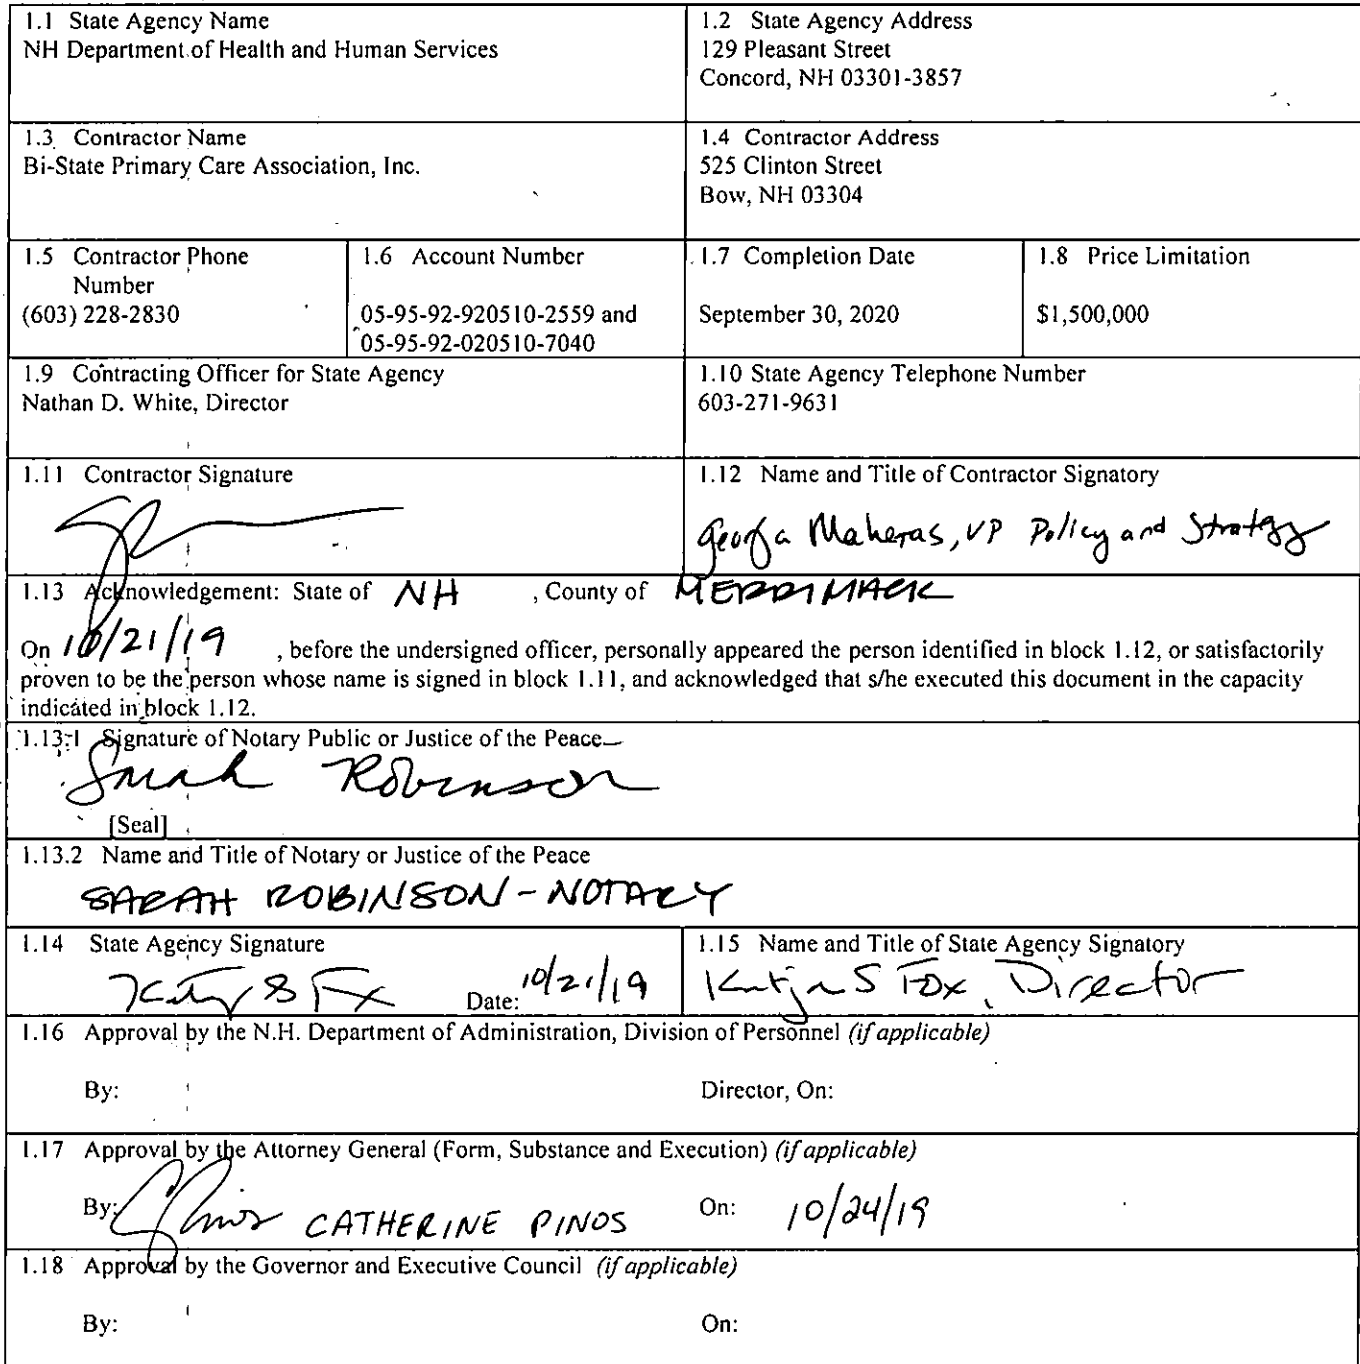 1.1 State Agency Name
NH Department of Health and Human Services
1.2 State Agency Address
129 Pleasant Street
Concord, NH 03301-3857
1.3 Contractor Name
Bi-State Primary Care Association, Inc.
1.4 Contractor Address
525 Clinton Street
Bow, NH 03304
1.5 Contractor Phone
Number
(603) 228-2830
1.6 Account Number
05-95-92-920510-2559 and
05-95-92-020510-7040
1.7 Completion Date
September 30, 2020
1.8 Price Limitation
$1,500,000
1.9 Contracting Officer for State Agency
Nathan D. White, Director
1.10 State Agency Telephone Number
603-271-9631
1.11 Contractor Signature
1.12 Name and Title of Contractor Signatory
Georgia Maheras, VP Policy and Strategy
1.13 Acknowledgement: State of NH , County of MERRIMACK
On 10/21/19 , before the undersigned officer, personally appeared the person identified in block 1.12, or satisfactorily
proven to be the person whose name is signed in block 1.11, and acknowledged that s/he executed this document in the capacity
indicated in block 1.12.
1.13.1 Signature of Notary Public or Justice of the Peace
Sarah Robinson
[Seal]
1.13.2 Name and Title of Notary or Justice of the Peace
SARAH ROBINSON - NOTARY
1.14 State Agency Signature
Date: 10/21/19
1.15 Name and Title of State Agency Signatory
Katja S Fox, Director
1.16 Approval by the N.H. Department of Administration, Division of Personnel (if applicable)
By:
Director, On:
1.17 Approval by the Attorney General (Form, Substance and Execution) (if applicable)
By: CATHERINE PINOS
On: 10/24/19
1.18 Approval by the Governor and Executive Council (if applicable)
By:
On: